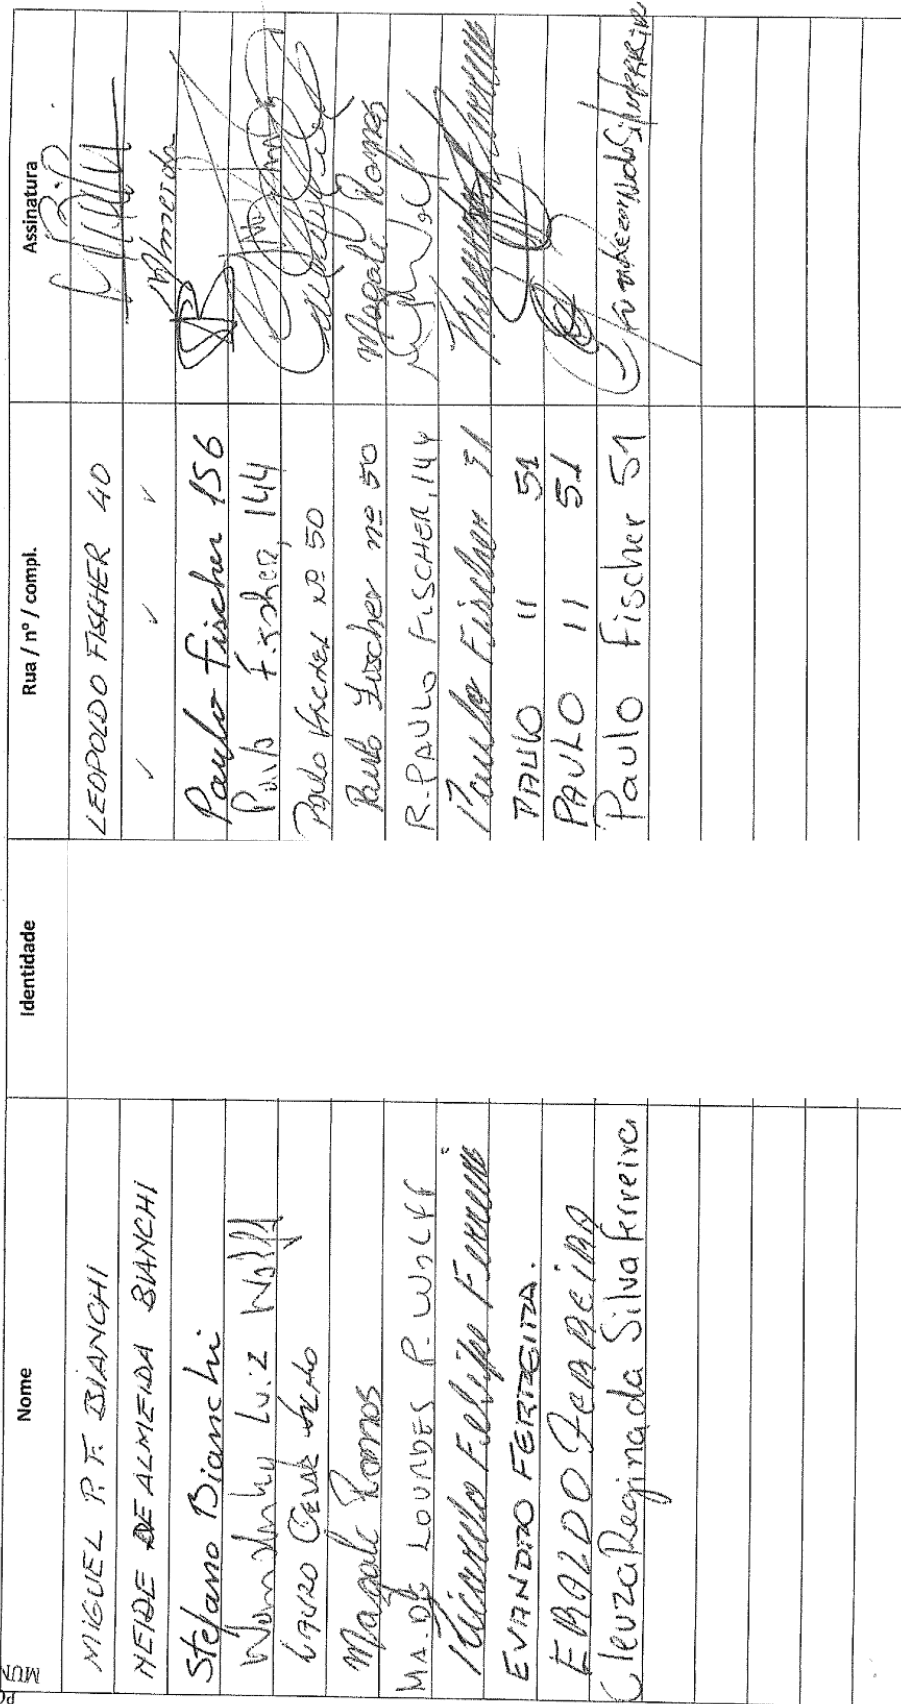 Nome Identidade Rua / nº / compl. Assinatura
MIGUEL P. F. BIANCHI LEOPOLDO FISCHER 40
NEIDE DE ALMEIDA BIANCHI ✓ ✓ ✓ Almeida
Stefano Bianchi Paulo Fischer 156
Luiz Wolff Paulo Fischer, 144
LAURO Paulo Fischer nº 50
Magali Ramos Paulo Fischer nº 50 Magali Ramos
MA. DE LOURDES P. WOLFF R. PAULO FISCHER, 144
Felipe Ferreira Paulo Fischer 31
EVANDRO FERREIRA. PAULO 11 51
ERALDO FERREIRA PAULO 11 51
Cleuza Regina da Silva Ferreira Paulo Fischer 51
MUN